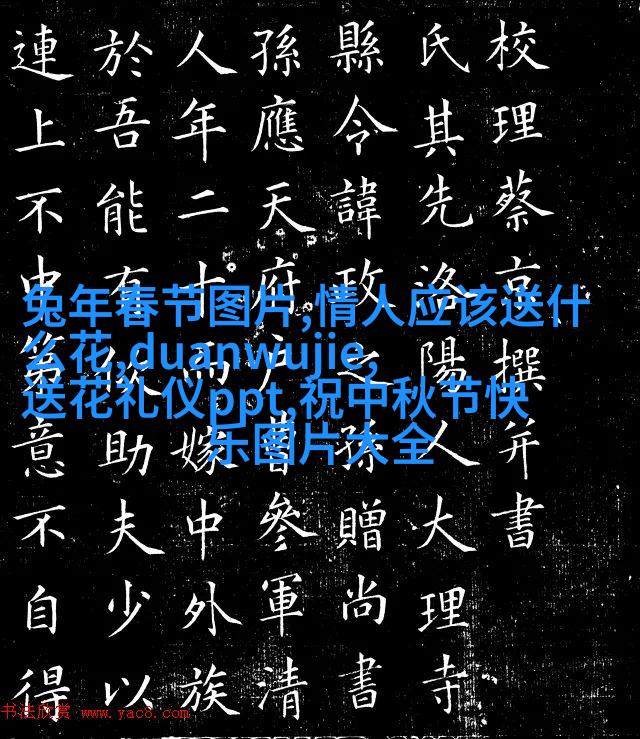 校理蔡京撰并書
氏其先洛陽人大理寺
縣令諱玫之孫贈尚書
孫應天府户曹參軍清
人年二十而嫁中外族
於吾能有助夫少以
連上不中第意不自得
兔年春节图片,情人应该送什
么花,duanwujie,
送花礼仪ppt,祝中秋节快
乐图片大全
书法欣赏 www.yac8.com